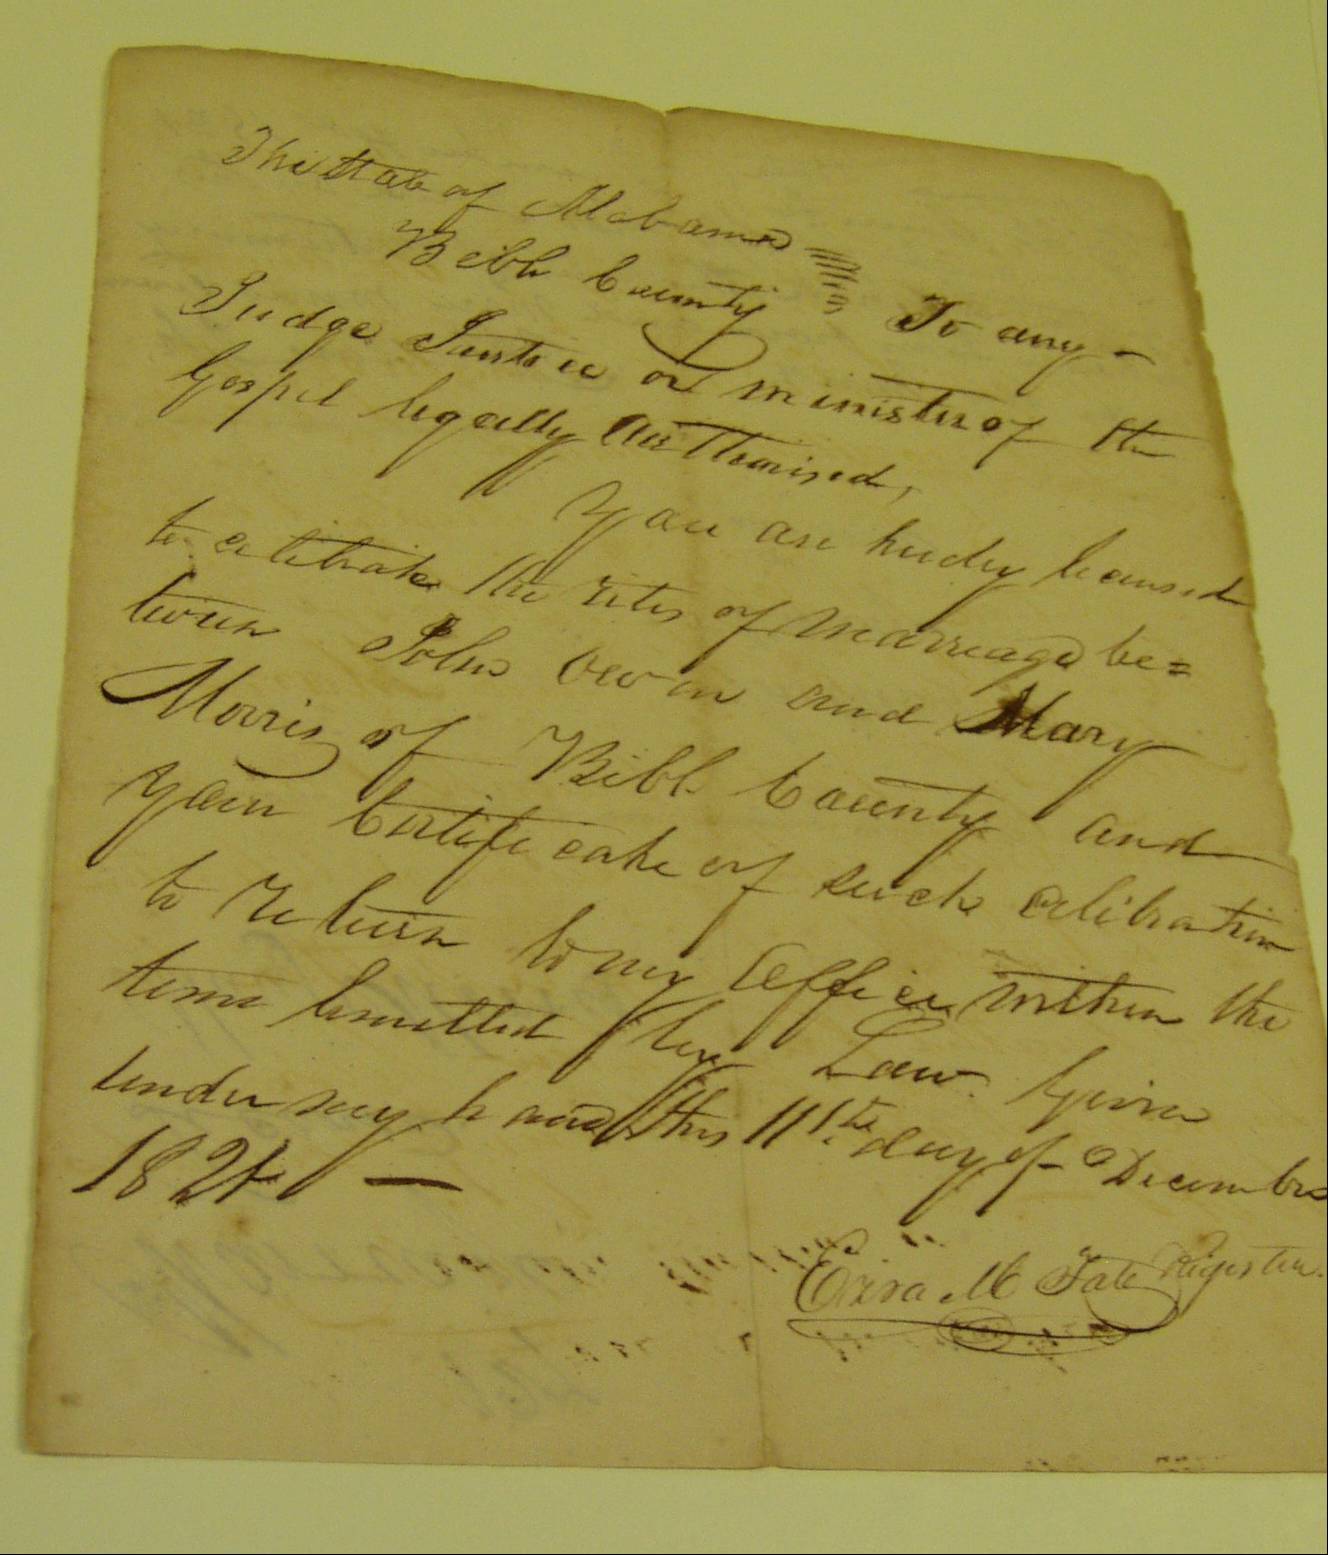 The State of Alabama
Bibb County To any -
Judge Justice or minister of the
Gospel legally authorised,
You are hereby licensed
to celibrate the rites of marriage be=
tween John Owen and Mary
Morris of Bibb County and
your Certificate of such celibration
to return to my office within the
time limitted by Law. Given
under my hand this 11th day of December
1824 —
Ezra M Tate Register.